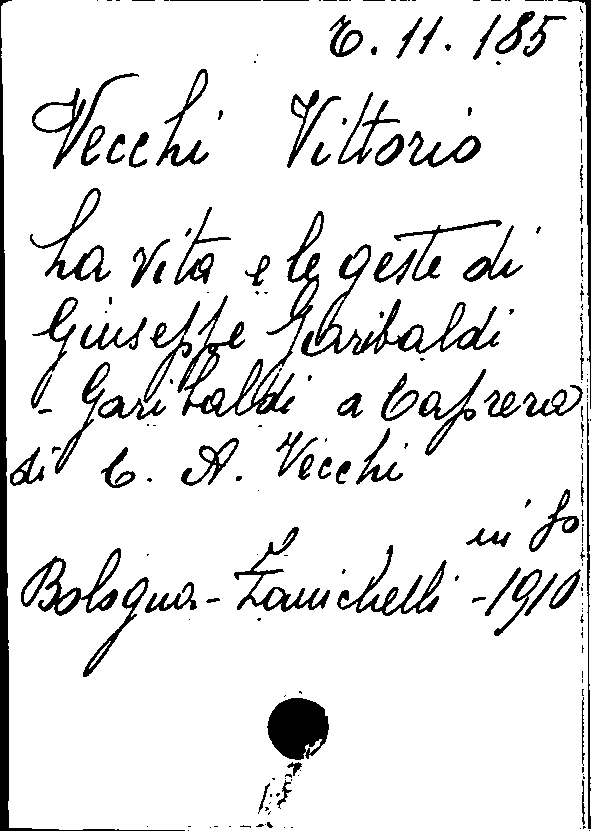 C. 11. 185
Vecchi Vittorio
La vita e le geste di
Giuseppe Garibaldi
- Garibaldi a Caprera
di C. A. Vecchi
in fo
Bologna - Zanichelli - 1910